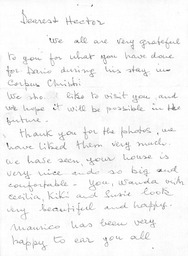 Dearest Hector
We all are very grateful
to you for what you have done
for Dario during his stay in
Corpus Christi
We like to visit you and
we hope it will be possible in the
future.
thank you for the photos, we
have liked them very much.
we have seen your house is
very nice and so big and
confortable. You, Wanda with
cecilia, Kiki and Susie look
very beautiful and happy.
Maurico has been very
happy to ear you all